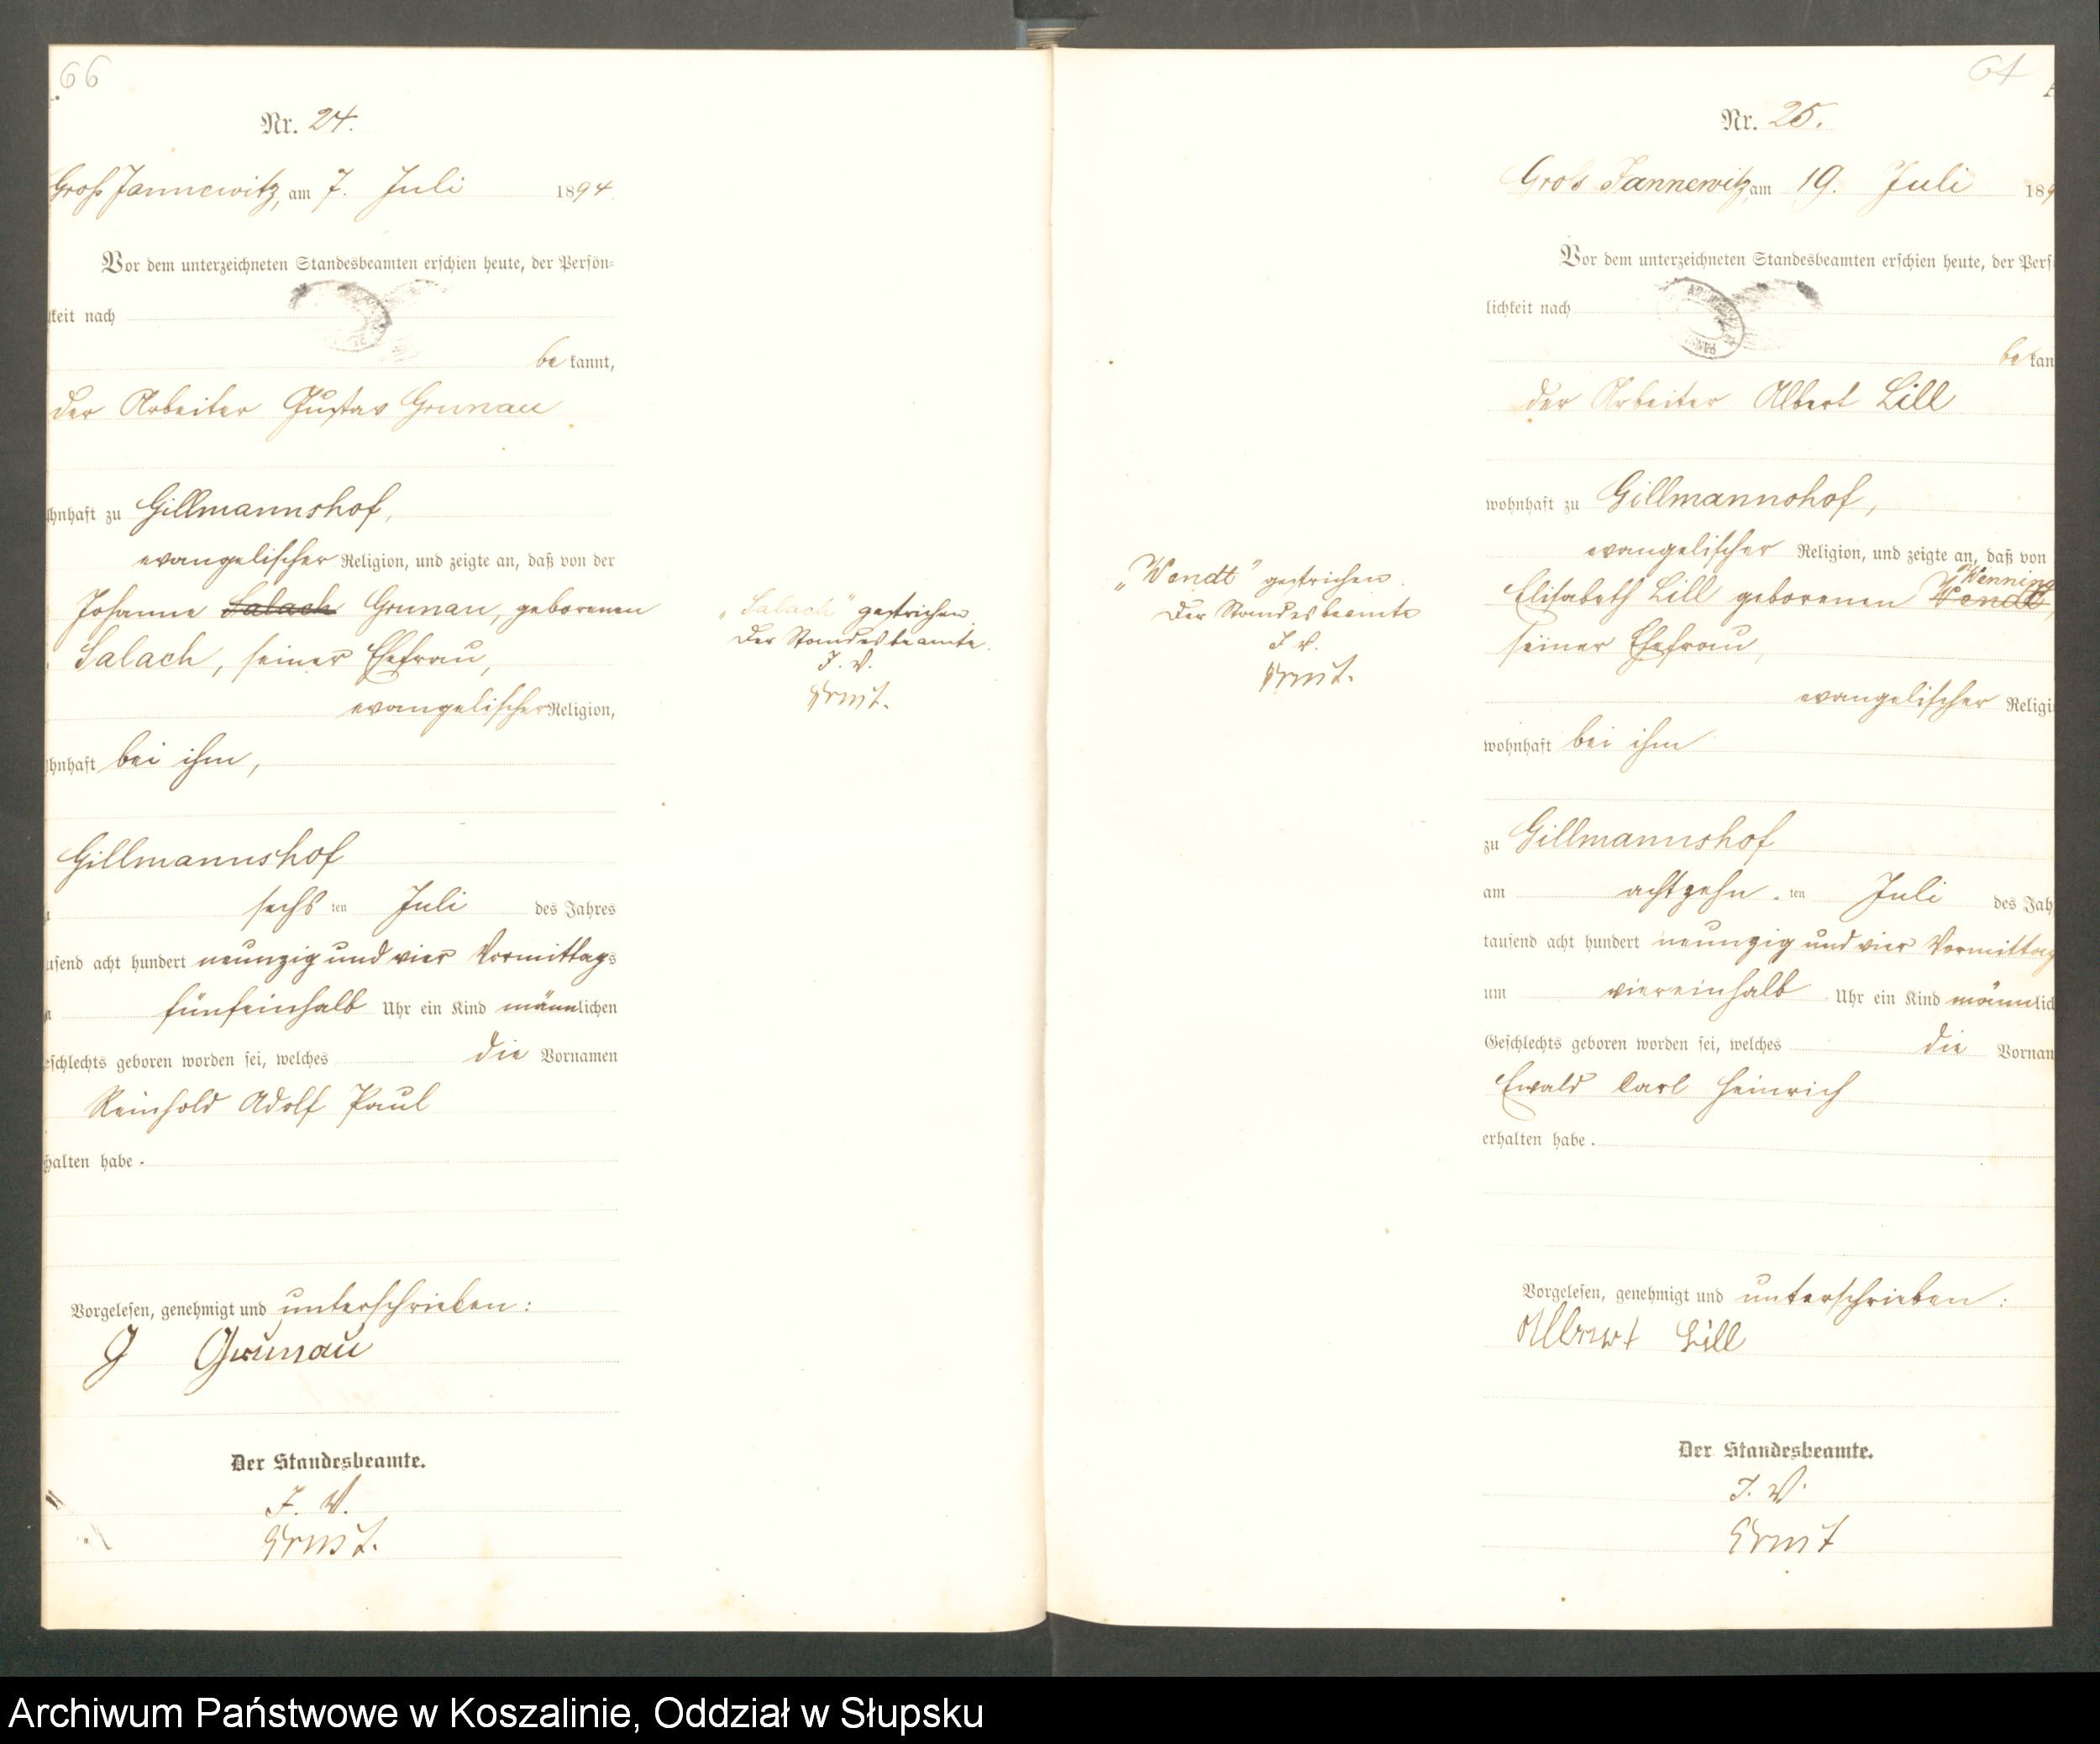 66
Nr. 24.
Groß Jannewitz, am 7. Juli 1894.
Vor dem unterzeichneten Standesbeamten erschien heute, der Persön-
keit nach
be kannt,
der Arbeiter Gustav Grunau
hnhaft zu Gillmannshof,
evangelischer Religion, und zeigte an, daß von der
Johanne Salach Grunau, geborenen
Salach, seiner Ehefrau,
evangelischer Religion,
hnhaft bei ihm,
Gillmannshof
sechs ten Juli des Jahres
usend acht hundert neunzig und vier Vormittags
fünfeinhalb Uhr ein Kind männlichen
eschlechts geboren worden sei, welches die Vornamen
Reinhold Adolf Paul
halten habe.
Vorgelesen, genehmigt und unterschrieben:
G Grunau
Der Standesbeamte.
I. V.
Ernst.
"Salach" gestrichen.
Der Standesbeamte.
I. V.
Ernst.
"Wendt" gestrichen.
Der Standesbeamte
I. V.
Ernst.
Nr. 25.
Groß Jannewitz, am 19. Juli 189
Vor dem unterzeichneten Standesbeamten erschien heute, der Pers
lichkeit nach
be kan
der Arbeiter Albert Lill
wohnhaft zu Gillmannshof,
evangelischer Religion, und zeigte an, daß von
Wenning
Elisabeth Lill geborenen Wendt,
seiner Ehefrau,
evangelischer Religi
wohnhaft bei ihm
zu Gillmannshof
am achtzehn ten Juli des Jah
tausend acht hundert neunzig und vier Vormittag
um viereinhalb Uhr ein Kind männlich
Geschlechts geboren worden sei, welches die Vornam
Ewald Carl Heinrich
erhalten habe.
Vorgelesen, genehmigt und unterschrieben:
Albert Lill
Der Standesbeamte.
I. V.
Ernst
Archiwum Państwowe w Koszalinie, Oddział w Słupsku